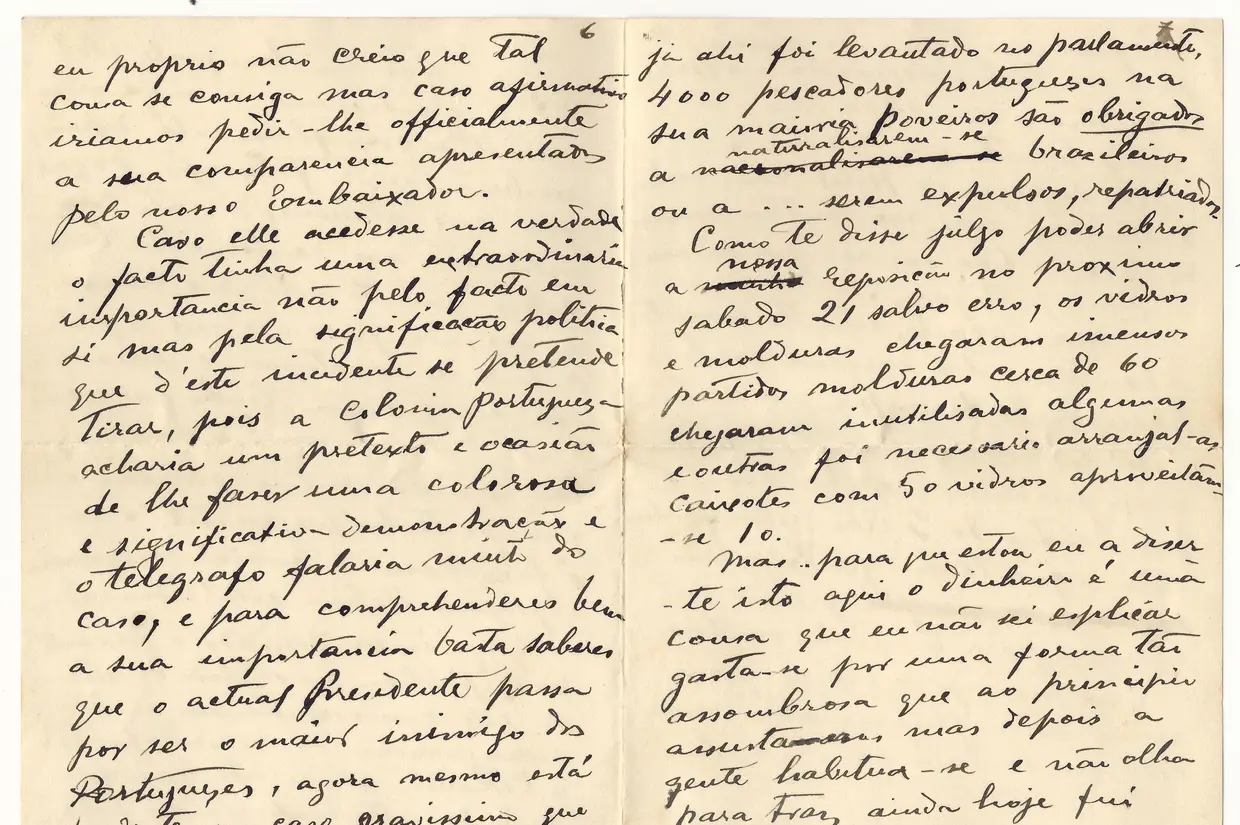 6
eu proprio não creio que tal
cousa se consiga mas caso afirmativo
iriamos pedir-lhe officialmente
a sua comparencia apresentados
pelo nosso Embaixador.
Caso elle acedesse na verdade
o facto tinha uma extraordinaria
importancia não pelo facto em
si mas pela significação politica
que d'este incidente se pretende
tirar, pois a Colonia Portugueza
acharia um pretexto e ocasião
de lhe faser uma colorosa
e significativa demonstração e
o telegrafo falaria muito do
caso, e para comprehenderes bem
a sua importancia basta saberes
que o actual Presidente passa
por ser o maior inimigo dos
Portuguezes, agora mesmo está
caso gravissimo que
7
ja ahi foi levantado no parlamento,
4000 pescadores portuguezes na
sua maioria Poveiros são obrigados
naturalisarem-se
a nacionalisarem se brazileiros
ou a ... serem expulsos, repatriados.
Como te disse julgo poder abrir
nossa
a minha exposição no proximo
sabado 21 salvo erro, os vidros
e molduras chegaram imensos
partidos molduras cerca de 60
chegaram inutilisadas algumas
e outras foi necessario arranjal-as
caixotes com 50 vidros aproveitam-
-se 10.
Mas.. para que estou eu a diser
-te isto aqui o dinheiro é uma
cousa que eu não sei esplicar
gasta-se por uma forma tão
assombrosa que ao principio
mas depois a
gente habitua-se e não olha
para traz ainda hoje fui